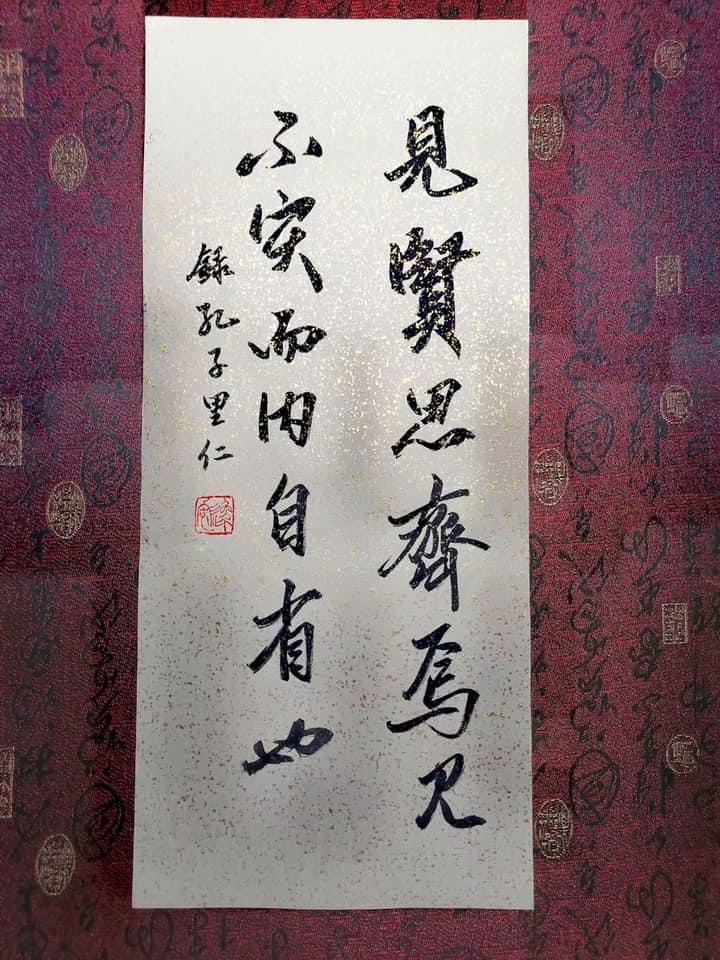 見賢思齊焉見
不賢而内自省也
錄孔子里仁